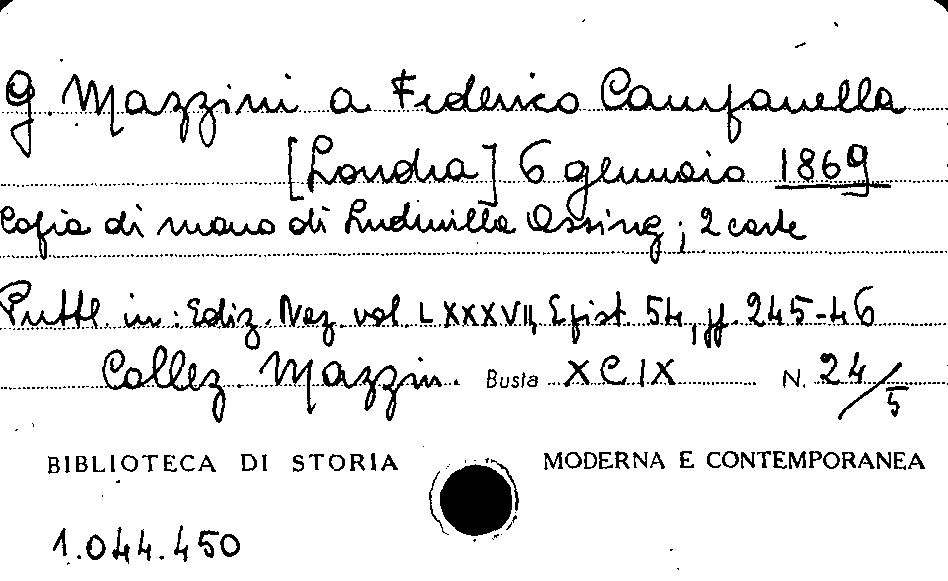 G. Mazzini a Federico Campanella
[Londra] 6 gennaio 1869
Copia di mano di Ludmilla Assing; 2 carte
Pubbl. in: Ediz. Naz. vol LXXXVII, Epist. 54, pp. 245-46
Collez. Mazzini. Busta XCIX N. 24/5
BIBLIOTECA DI STORIA MODERNA E CONTEMPORANEA
1.044.450